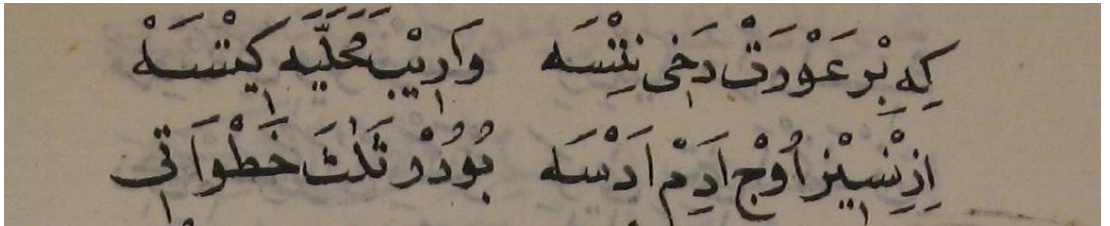 كِه بِرْ عَوْرَتْ دَخِى نِتْسَه وَارِيْبْ مَحَلَّيَه كِيتْسَهْ
اِذِنْسِيْز اُوْج اَدِمْ اَدْسَه بُودُرْ ثَلٰثَ خَطْوَاتِى